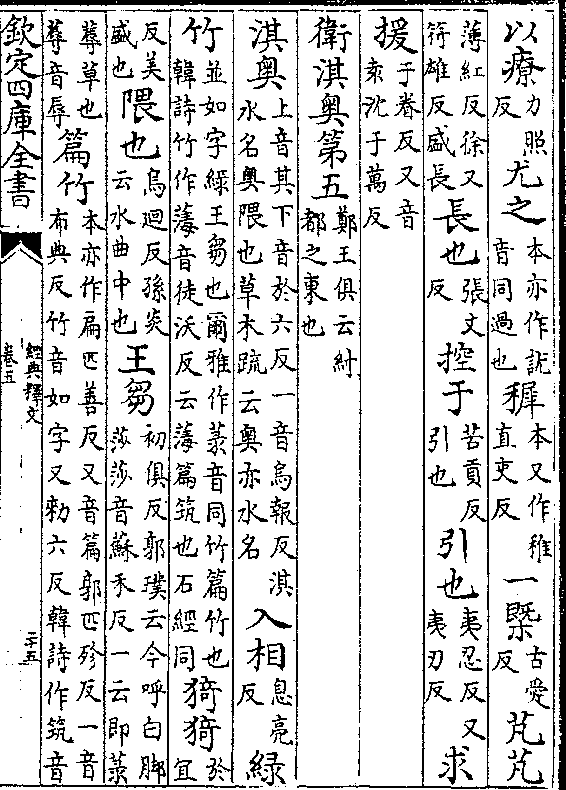 以療力照反尤之本亦作訧音同過也穉本又作稚直吏反一槩古愛反芃芃
薄紅反徐又符雄反盛長長也張丈反控于苦貢反引也引也夷忍反又夷刃反求
援于眷反又音袁沈于萬反
衛淇奥第五鄭王俱云紂都之東也
淇奥上音其下音於六反一音烏報反淇水名奥隈也草木疏云奥亦水名入相息亮反綠
竹並如字綠王芻也爾雅作菉音同竹篇竹也韓詩竹作䔭音徒沃反云䔭篇筑也石經同猗猗於宜
反美盛也隈也烏迴反孫炎云水曲中也王芻初俱反郭璞云今呼白脚莎莎音蘇禾反一云即菉
蓐草也蓐音辱篇竹本亦作扁匹善反又音篇郭匹殄反一音布典反竹音如字又勅六反韓詩作筑音
欽定四庫全書
經典釋文
卷五
二十五